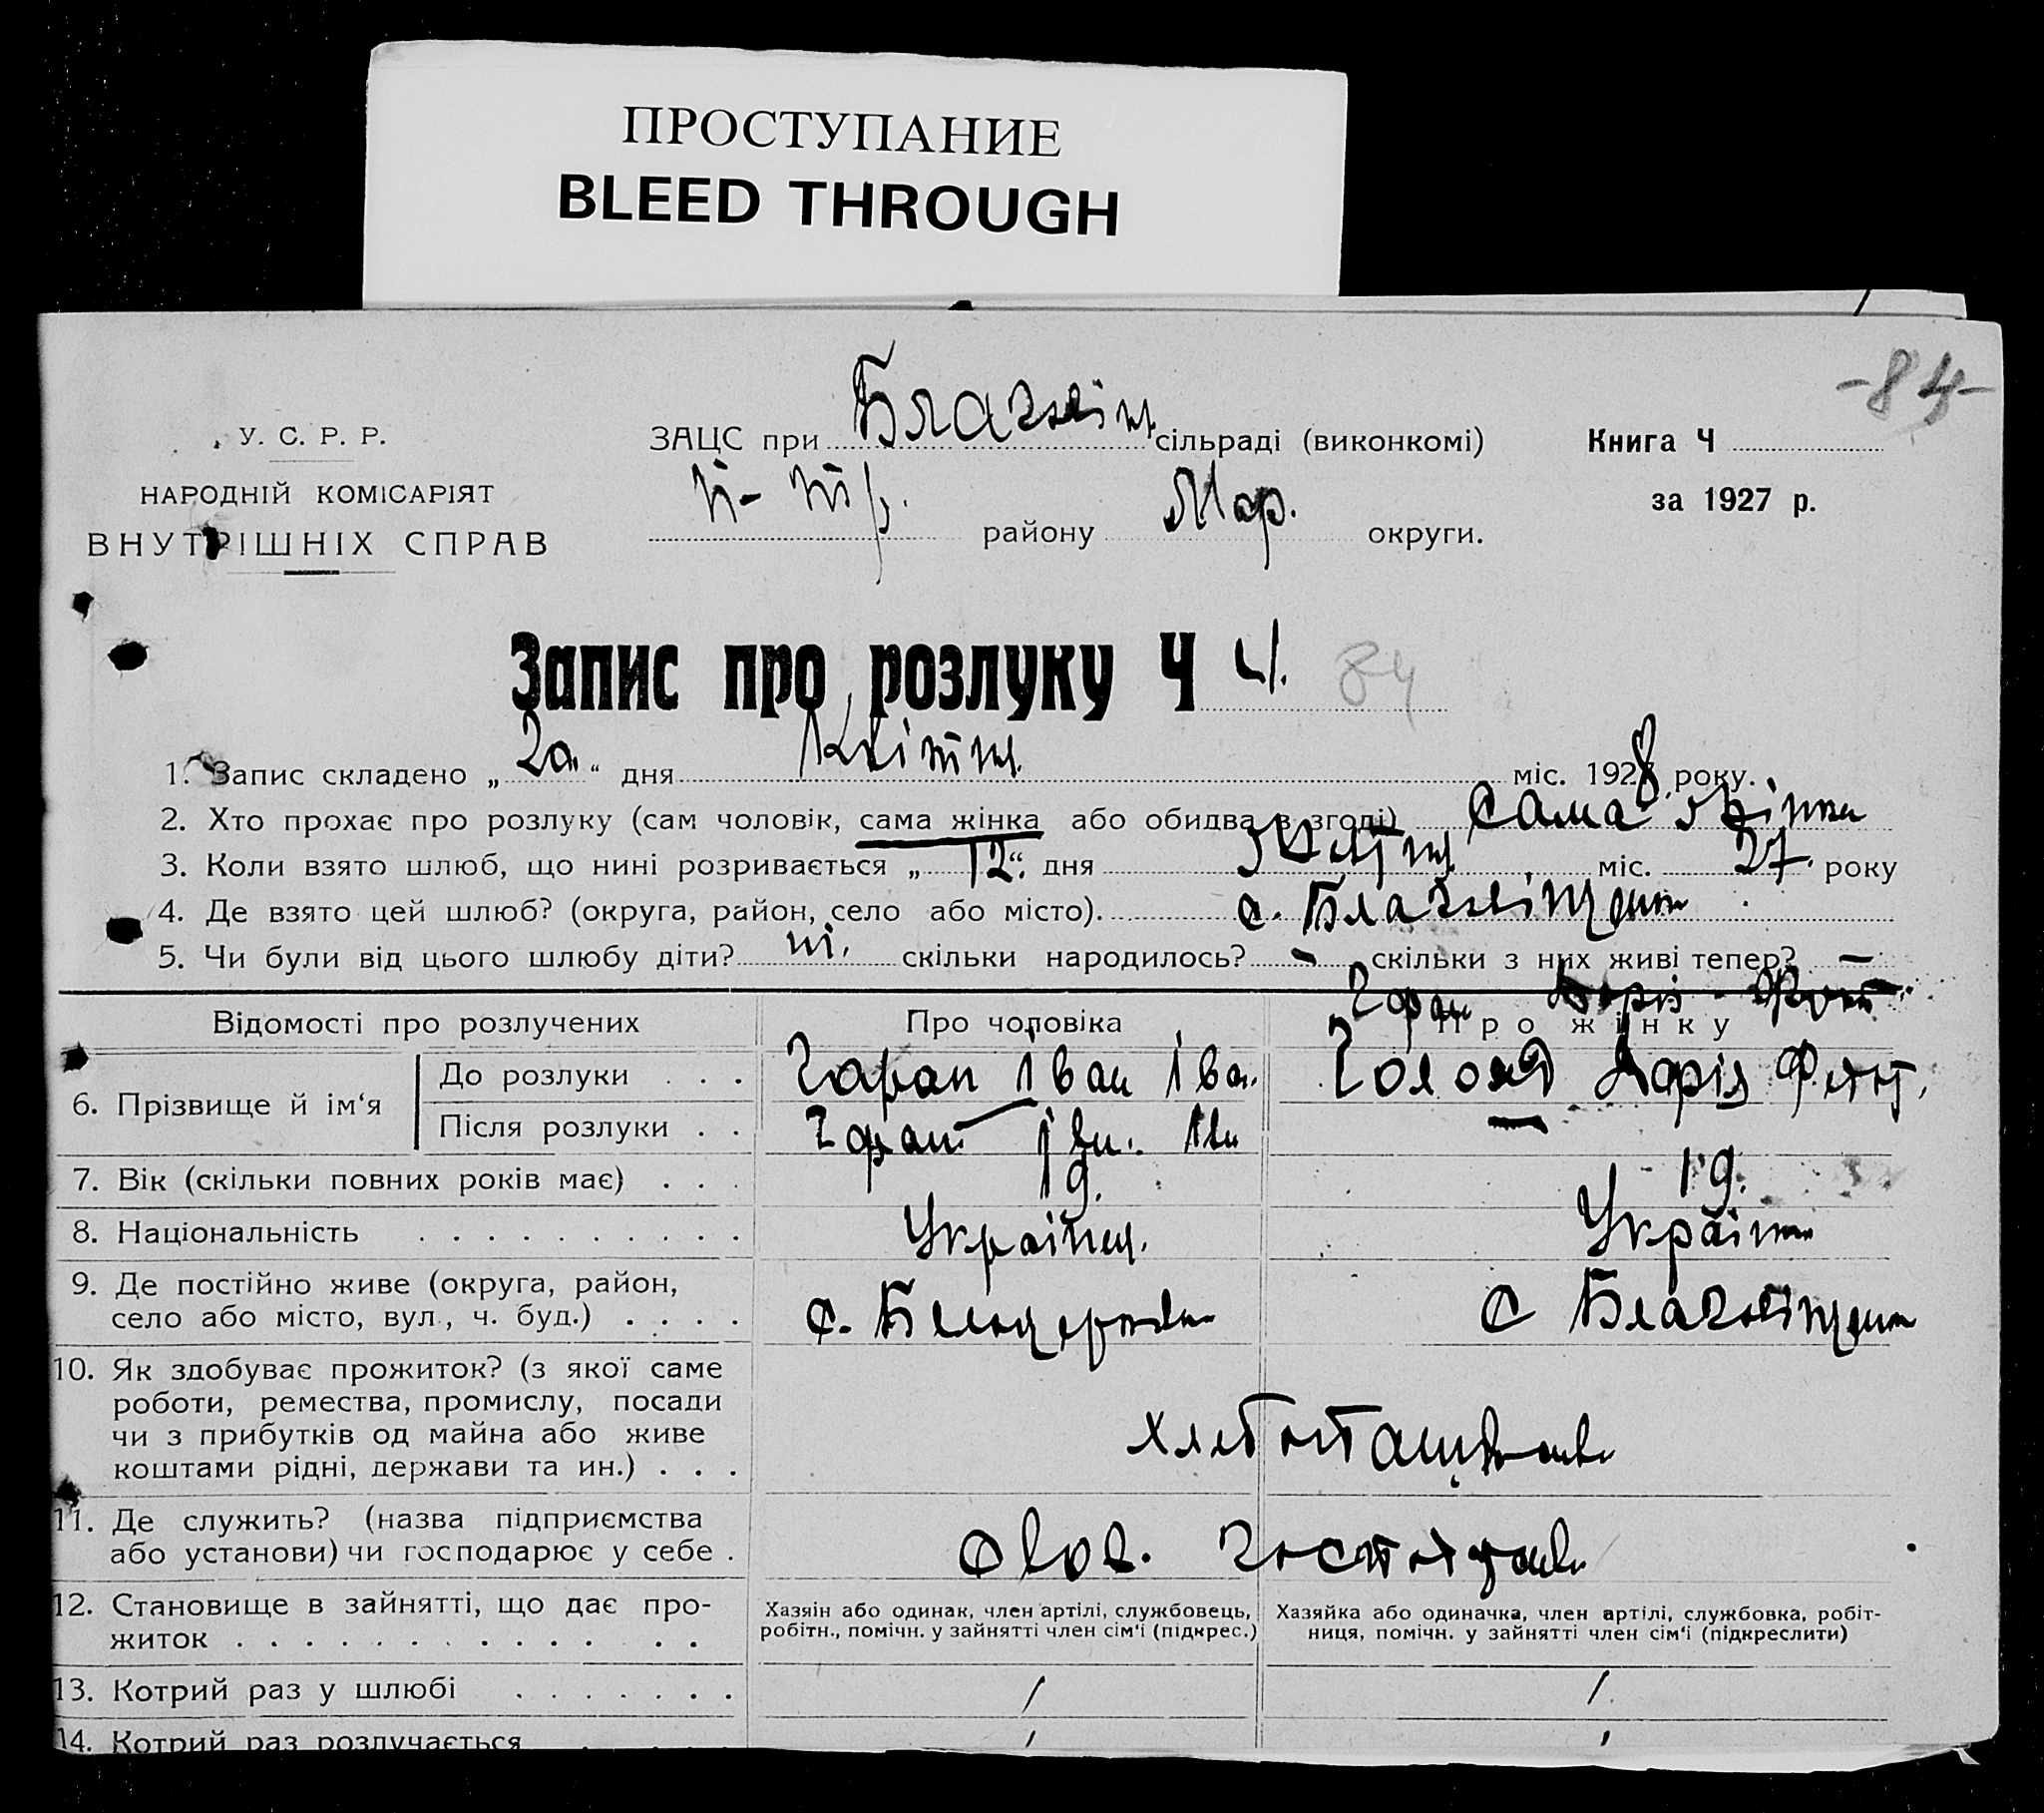 ПРОСТУПАНИЕ
BLEED THROUGH
-84-
У. С. Р. Р.
НАРОДНІЙ КОМІСАРІЯТ
ВНУТРІШНІХ СПРАВ
ЗАЦС при Благовіщ сільраді (виконкомі)
району Мар. округи.
Книга Ч
за 1927 р.
Запис про розлуку Ч 4. 84
1. Запис складено „ 2а “ дня Квітня міс. 1928 року.
2. Хто прохає про розлуку (сам чоловік, сама жінка або обидва в згоді) сама жінка
3. Коли взято шлюб, що нині розривається „ 12 “ дня міс. 27. року
4. Де взято цей шлюб? (округа, район, село або місто). с. Благовіщенка
5. Чи були від цього шлюбу діти? ні. скільки народилось? - скільки з них живі тепер? —
Відомості про розлучених
Про чоловіка
Про жінку
6. Прізвище й ім‘я
До розлуки . . . Гаран Іван Іва. Дарія
Після розлуки . . Гаран Іван. Іва —
7. Вік (скільки повних років має) . . . 19. 19.
8. Національність . . . . . . . . . . Українец. Українка
9. Де постійно живе (округа, район,
село або місто, вул., ч. буд.) . . . . с. с Благовіщенка
10. Як здобуває прожиток? (з якої саме
роботи, ремества, промислу, посади
чи з прибутків од майна або живе
коштами рідні, держави та ин.) . . .
11. Де служить? (назва підприємства
або установи) чи господарює у себе .
12. Становище в зайнятті, що дає про-
житок . . . . . . . . . . . . . .
Хазяін або одинак, член артілі, службовець,
робітн., помічн. у зайнятті член сім‘і (підкрес.)
Хазяйка або одиначка, член артілі, службовка, робіт-
ниця, помічн. у зайнятті член сім‘і (підкреслити)
13. Котрий раз у шлюбі . . . . . . . 1 1.
14. Котрий раз розлучається